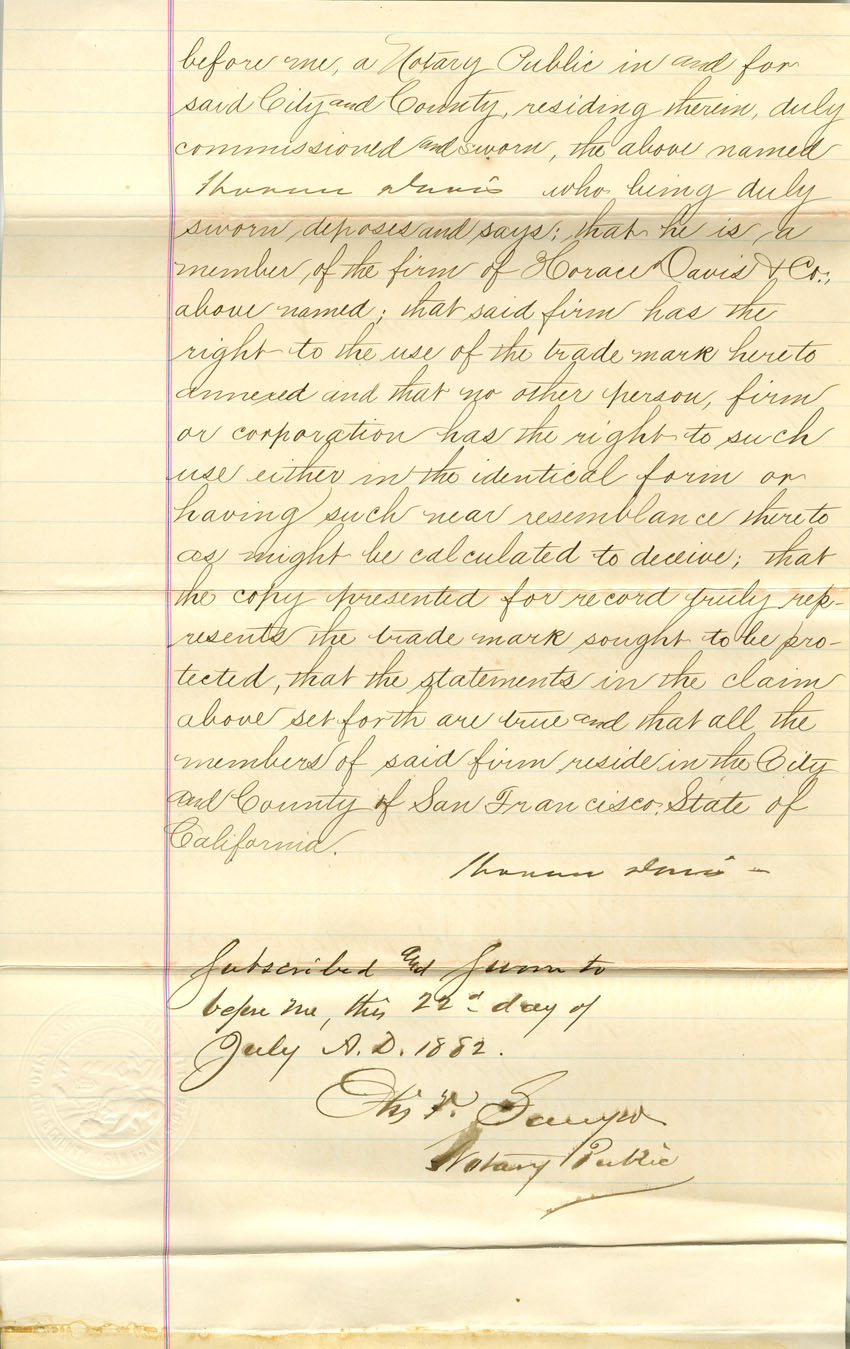 before me, a Notary Public in and for
said City and County, residing therein, duly
commissioned and sworn, the above named
Horace Davis who being duly
sworn, deposes and says; that he is a
member, of the firm of Horace Davis & Co.,
above named; that said firm has the
right to the use of the trade mark hereto
annexed and that no other person, firm
or corporation has the right to such
use either in the identical form or
having such near resemblance thereto
as might be calculated to deceive; that
the copy presented for record truly rep-
resents the trade mark sought to be pro-
tected, that the statements in the claim
above set forth are true and that all the
members of said firm reside in the City
and County of San Francisco, State of
California.
Horace Davis
Subscribed and Sworn to
before me, this 22d day of
July A.D. 1882.
Otis V. Sawyer
Notary Public